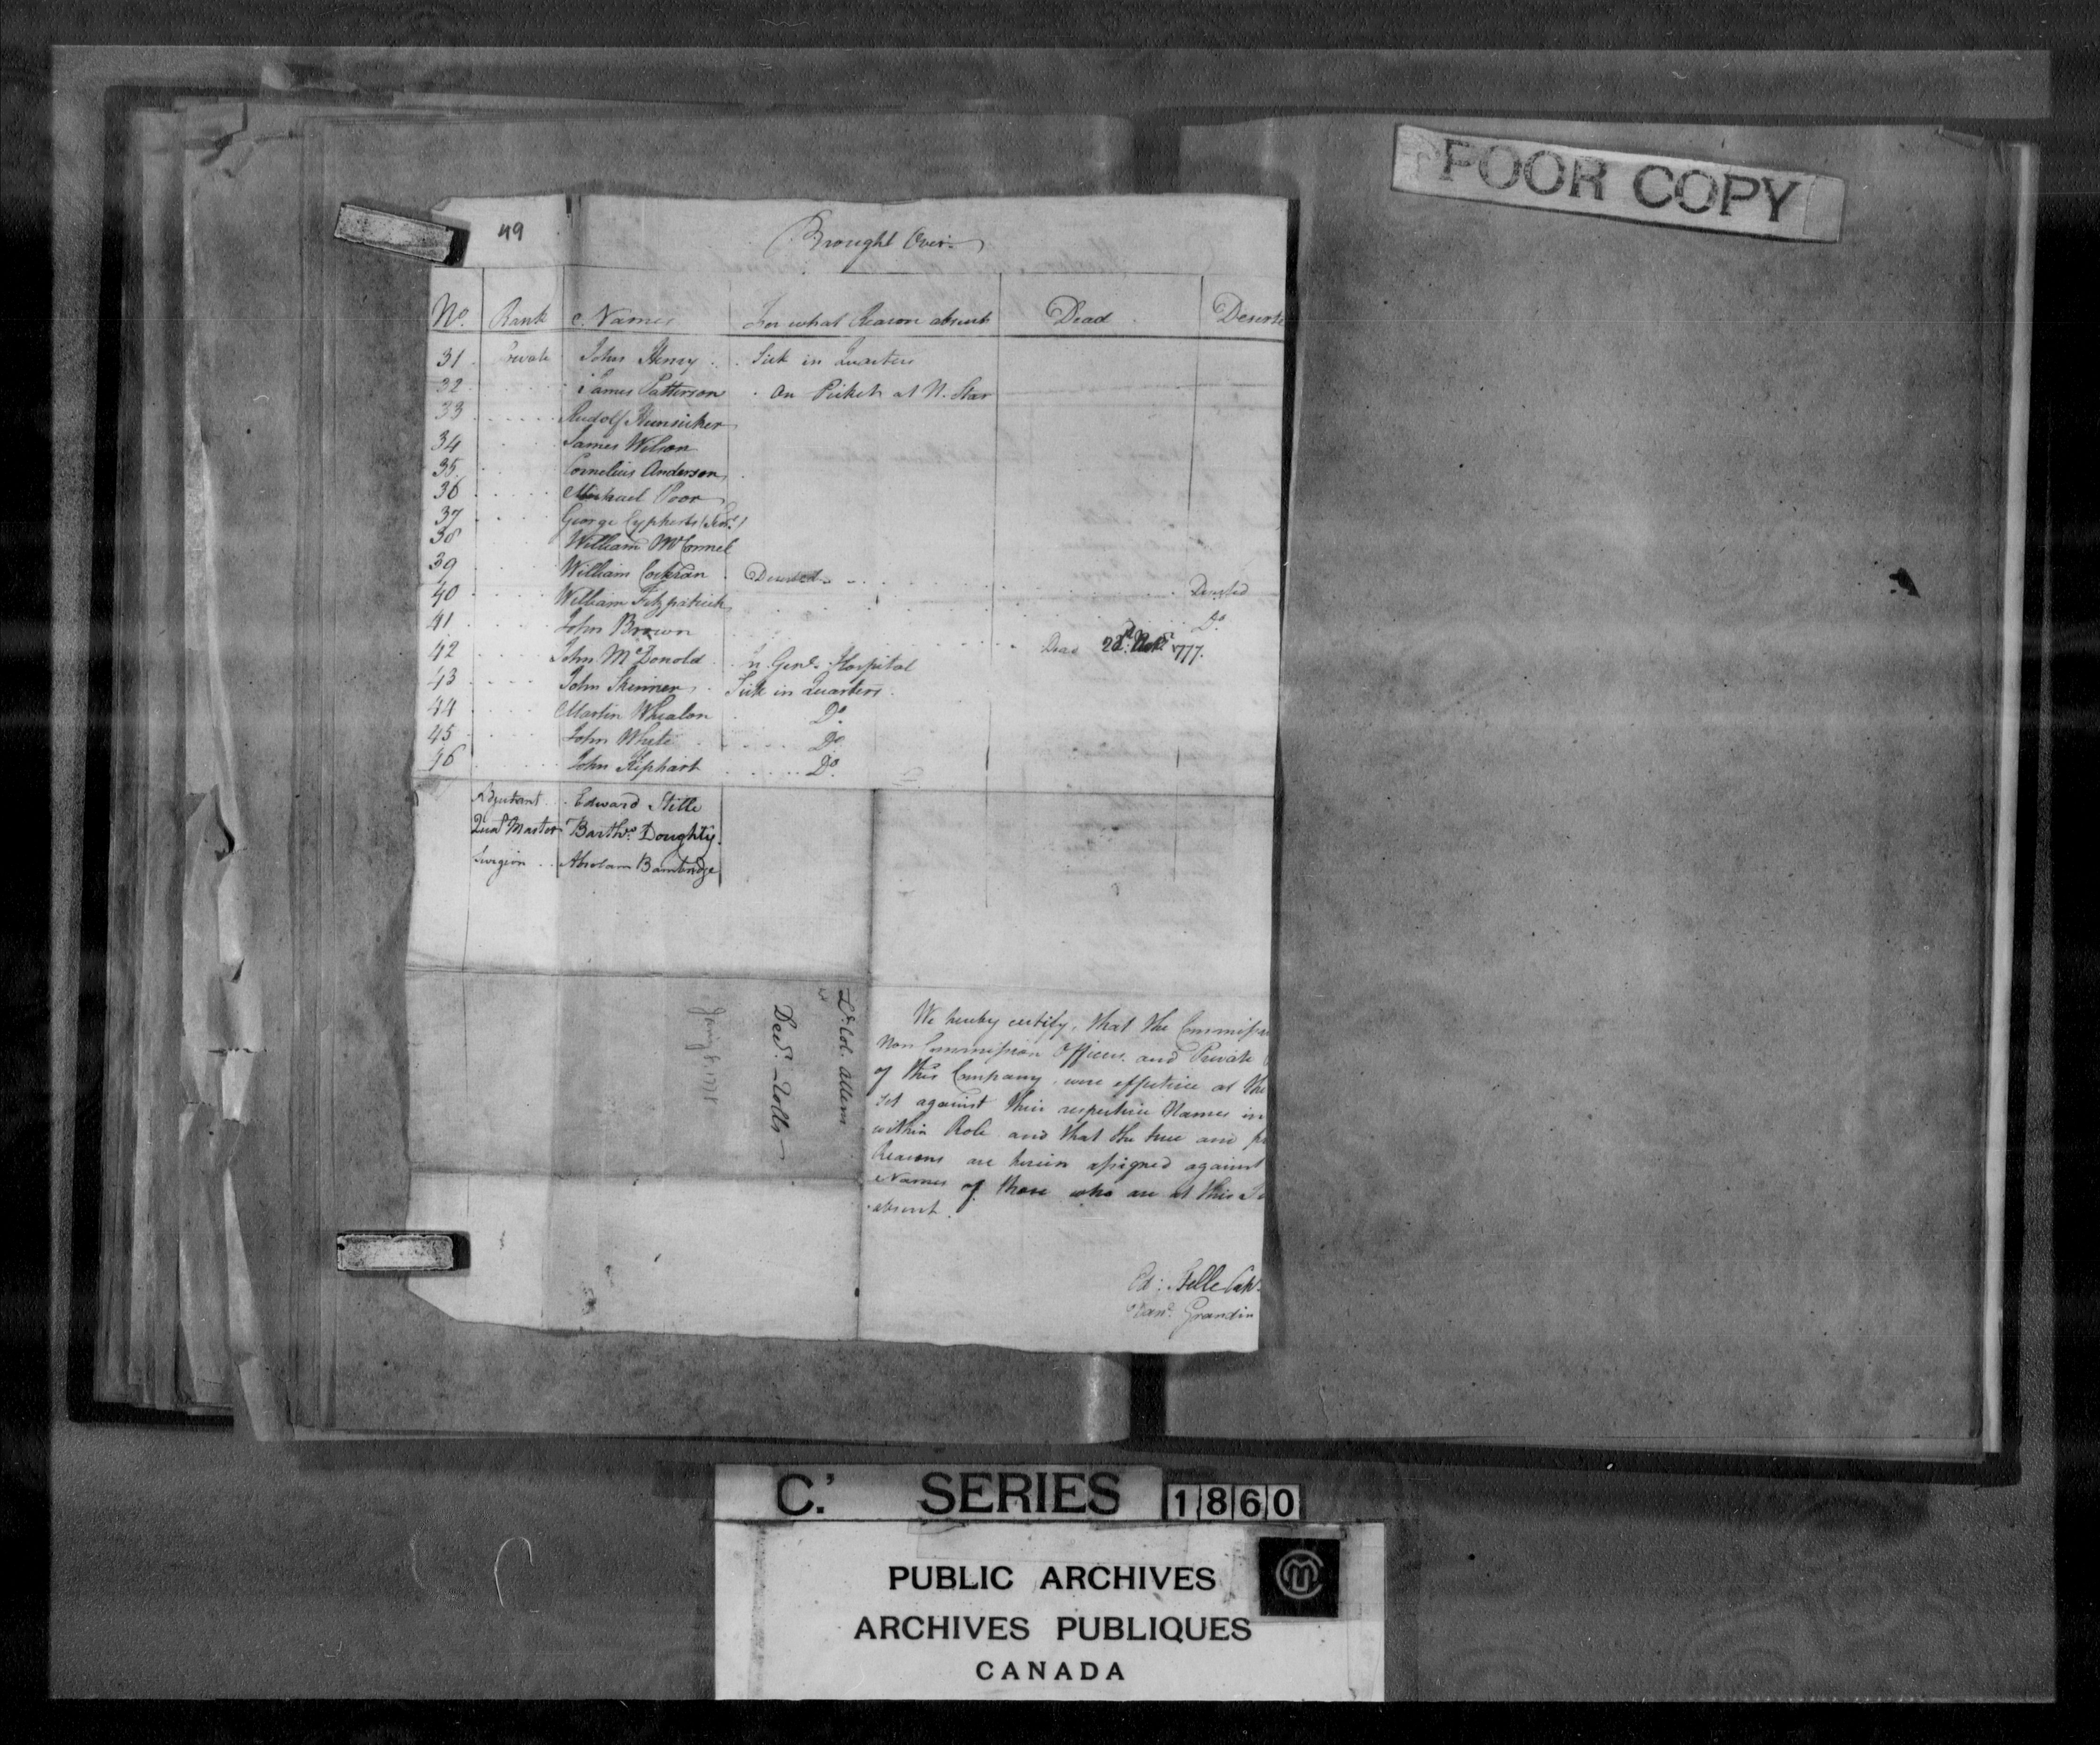 POOR COPY
49
Brought Over
No. Rank Names For what Reason absent Dead Deserte
31 Private John Henry Sick in Quarters
32 James Patterson On Picket at N. Star
33 Rudolf Hunsicker
34 James Wilson
35 Cornelius Anderson
36 Michael Poor
37 George Cypherts
38 William McConnel
39 William Cochran Deserted Deserted
40 William Fitzpatrick Do.
41 John Brown Dead 1777.
42 John McDonold In Genl. Hospital
43 John Skinner Sick in Quarters
44 Martin Whealon Do.
45 John White Do.
46 John Kiphart Do.
Adjutant Edward Stille
Quar Master Barthw. Doughty
Surgeon Absolam Bambridge
Lt. Col. Allen
Decr. Rolls
We hereby certify, that the Commiss
Non Commission Officers and Private
of this Company, were effective at the
set against their respective Names in
within Role and that the true and
Reasons are herein assigned against
Names of those who are at this
absent.
Ed: Stille Capt.
Grandin
C.' SERIES 1860
PUBLIC ARCHIVES
ARCHIVES PUBLIQUES
CANADA